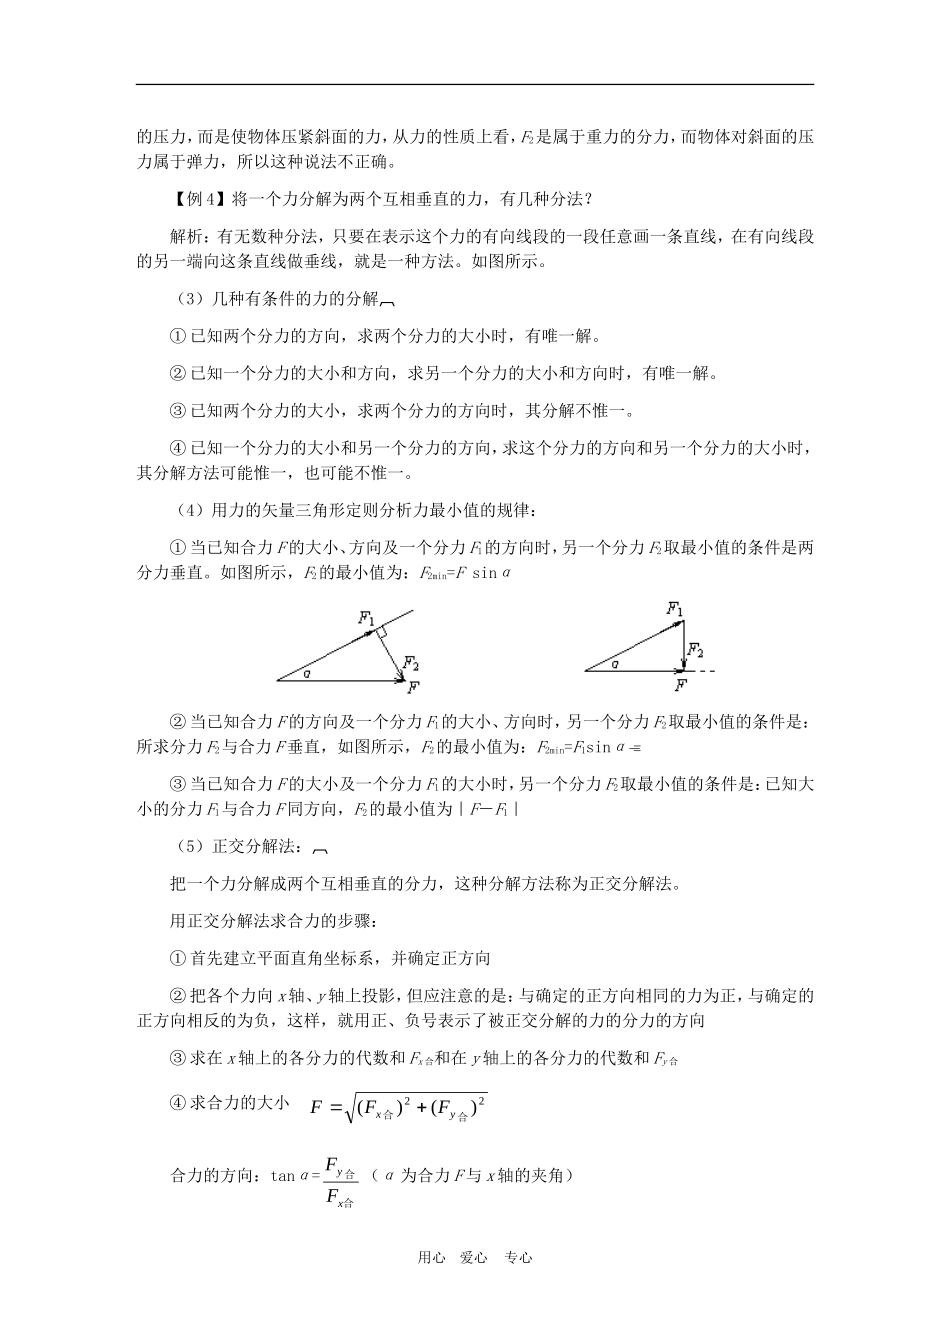 的压力，而是使物体压紧斜面的力，从力的性质上看，F2是属于重力的分力，而物体对斜面的压
力属于弹力，所以这种说法不正确。
【例 4】将一个力分解为两个互相垂直的力，有几种分法？
解析：有无数种分法，只要在表示这个力的有向线段的一段任意画一条直线，在有向线段
的另一端向这条直线做垂线，就是一种方法。如图所示。
（3）几种有条件的力的分解
① 已知两个分力的方向，求两个分力的大小时，有唯一解。
② 已知一个分力的大小和方向，求另一个分力的大小和方向时，有唯一解。
③ 已知两个分力的大小，求两个分力的方向时，其分解不惟一。
④ 已知一个分力的大小和另一个分力的方向，求这个分力的方向和另一个分力的大小时，
其分解方法可能惟一，也可能不惟一。
（4）用力的矢量三角形定则分析力最小值的规律：
① 当已知合力 F 的大小、方向及一个分力 F1 的方向时，另一个分力 F2 取最小值的条件是两
分力垂直。如图所示，F2 的最小值为：F2min=F sinα
F1 F2 F α
F1 F2 F α
② 当已知合力 F 的方向及一个分力 F1 的大小、方向时，另一个分力 F2 取最小值的条件是：
所求分力 F2 与合力 F 垂直，如图所示，F2 的最小值为：F2min=F1sinα
③ 当已知合力 F 的大小及一个分力 F1 的大小时，另一个分力 F2 取最小值的条件是：已知大
小的分力 F1 与合力 F 同方向，F2 的最小值为｜F－F1｜
（5）正交分解法：
把一个力分解成两个互相垂直的分力，这种分解方法称为正交分解法。
用正交分解法求合力的步骤：
① 首先建立平面直角坐标系，并确定正方向
② 把各个力向 x 轴、y 轴上投影，但应注意的是：与确定的正方向相同的力为正，与确定的
正方向相反的为负，这样，就用正、负号表示了被正交分解的力的分力的方向
③ 求在 x 轴上的各分力的代数和 Fx合和在 y 轴上的各分力的代数和 Fy合
④ 求合力的大小 F = √(Fx合)² + (Fy合)²
合力的方向：tanα= Fy合/Fx合 （α 为合力 F 与 x 轴的夹角）
用心 爱心 专心